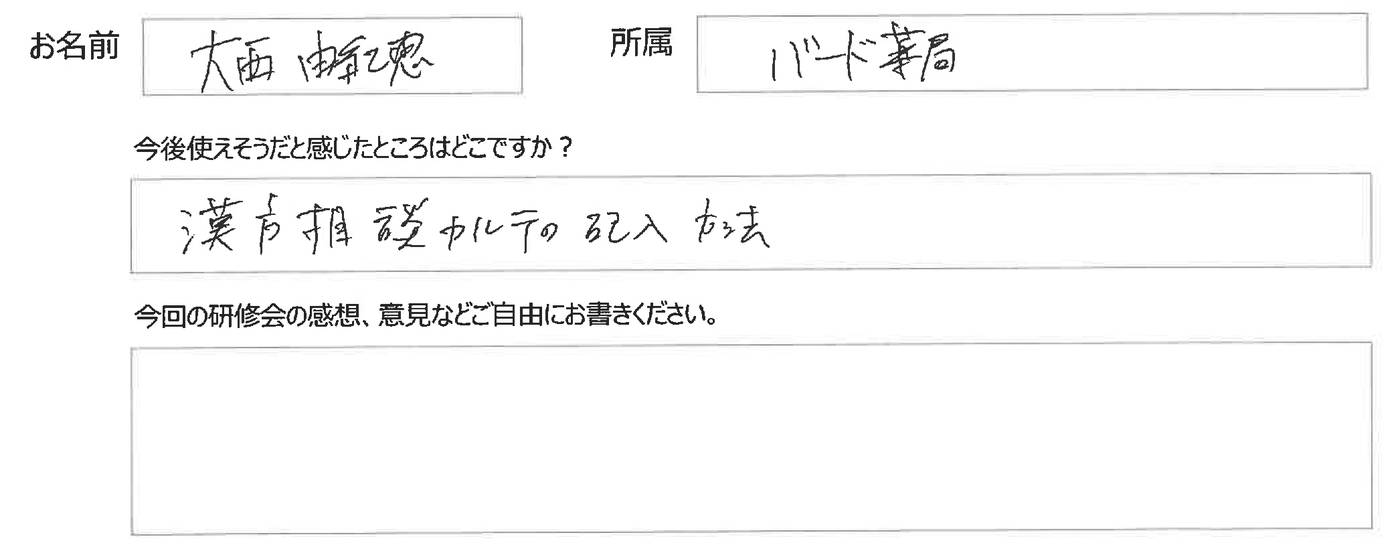 お名前 大西 由紀恵 所属 バード薬局
今後使えそうだと感じたところはどこですか？
漢方相談カルテの記入方法
今回の研修会の感想、意見などご自由にお書きください。